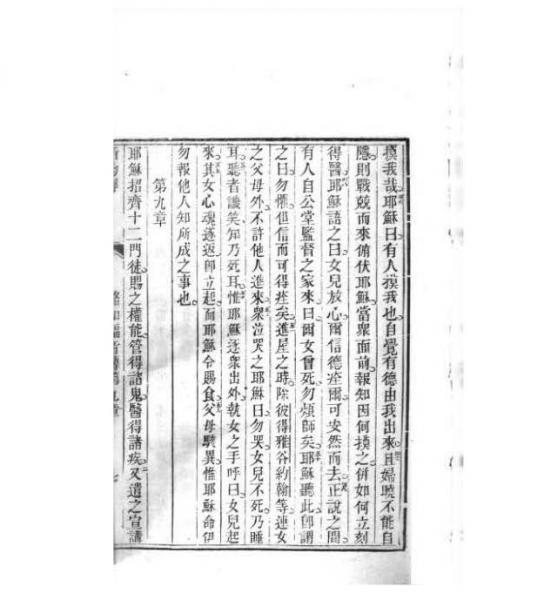 摸我哉。耶穌曰有人摸我也自覺有德由我出來且婦曉不能自
隱則戰兢而來俯伏耶穌當眾面前報知因何摸之併如何立刻
得醫耶穌語之曰女兒放心爾信德痊爾可安然而去正說之間
有人自公堂監督之家來曰爾女會死勿煩師矣耶穌聽此即謂
之曰勿懼但信而可得痊矣進屋之時除彼得雅谷約翰等連女
之父母外不許他人進來眾泣哭之耶穌曰勿哭女兒不死乃睡
耳聽者譏笑知乃死耳惟耶穌逐眾出外執女之手呼曰女兒起
來其女心魂遂返即立起而耶穌令賜食父母駭異惟耶穌命伊
勿報他人知所成之事也。
第九章
耶穌招齊十二門徒賜之權能管得諸鬼醫得諸疾又遣之宣講
福音傳第九章